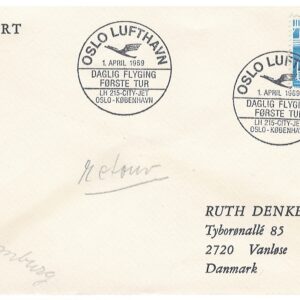 RT
OSLO LUFTHAVN
1. APRIL 1969
DAGLIG FLYGING
FØRSTE TUR
LH 215-CITY-JET
OSLO-KØBENHAVN
OSLO LUFTHAVN
1. APRIL 1969
DAGLIG FLYGING
FØRSTE TUR
LH 215-CITY-JET
OSLO-KØBENHAVN
Retour
RUTH DENKE
Tyborønallé 85
2720 Vanløse
Danmark